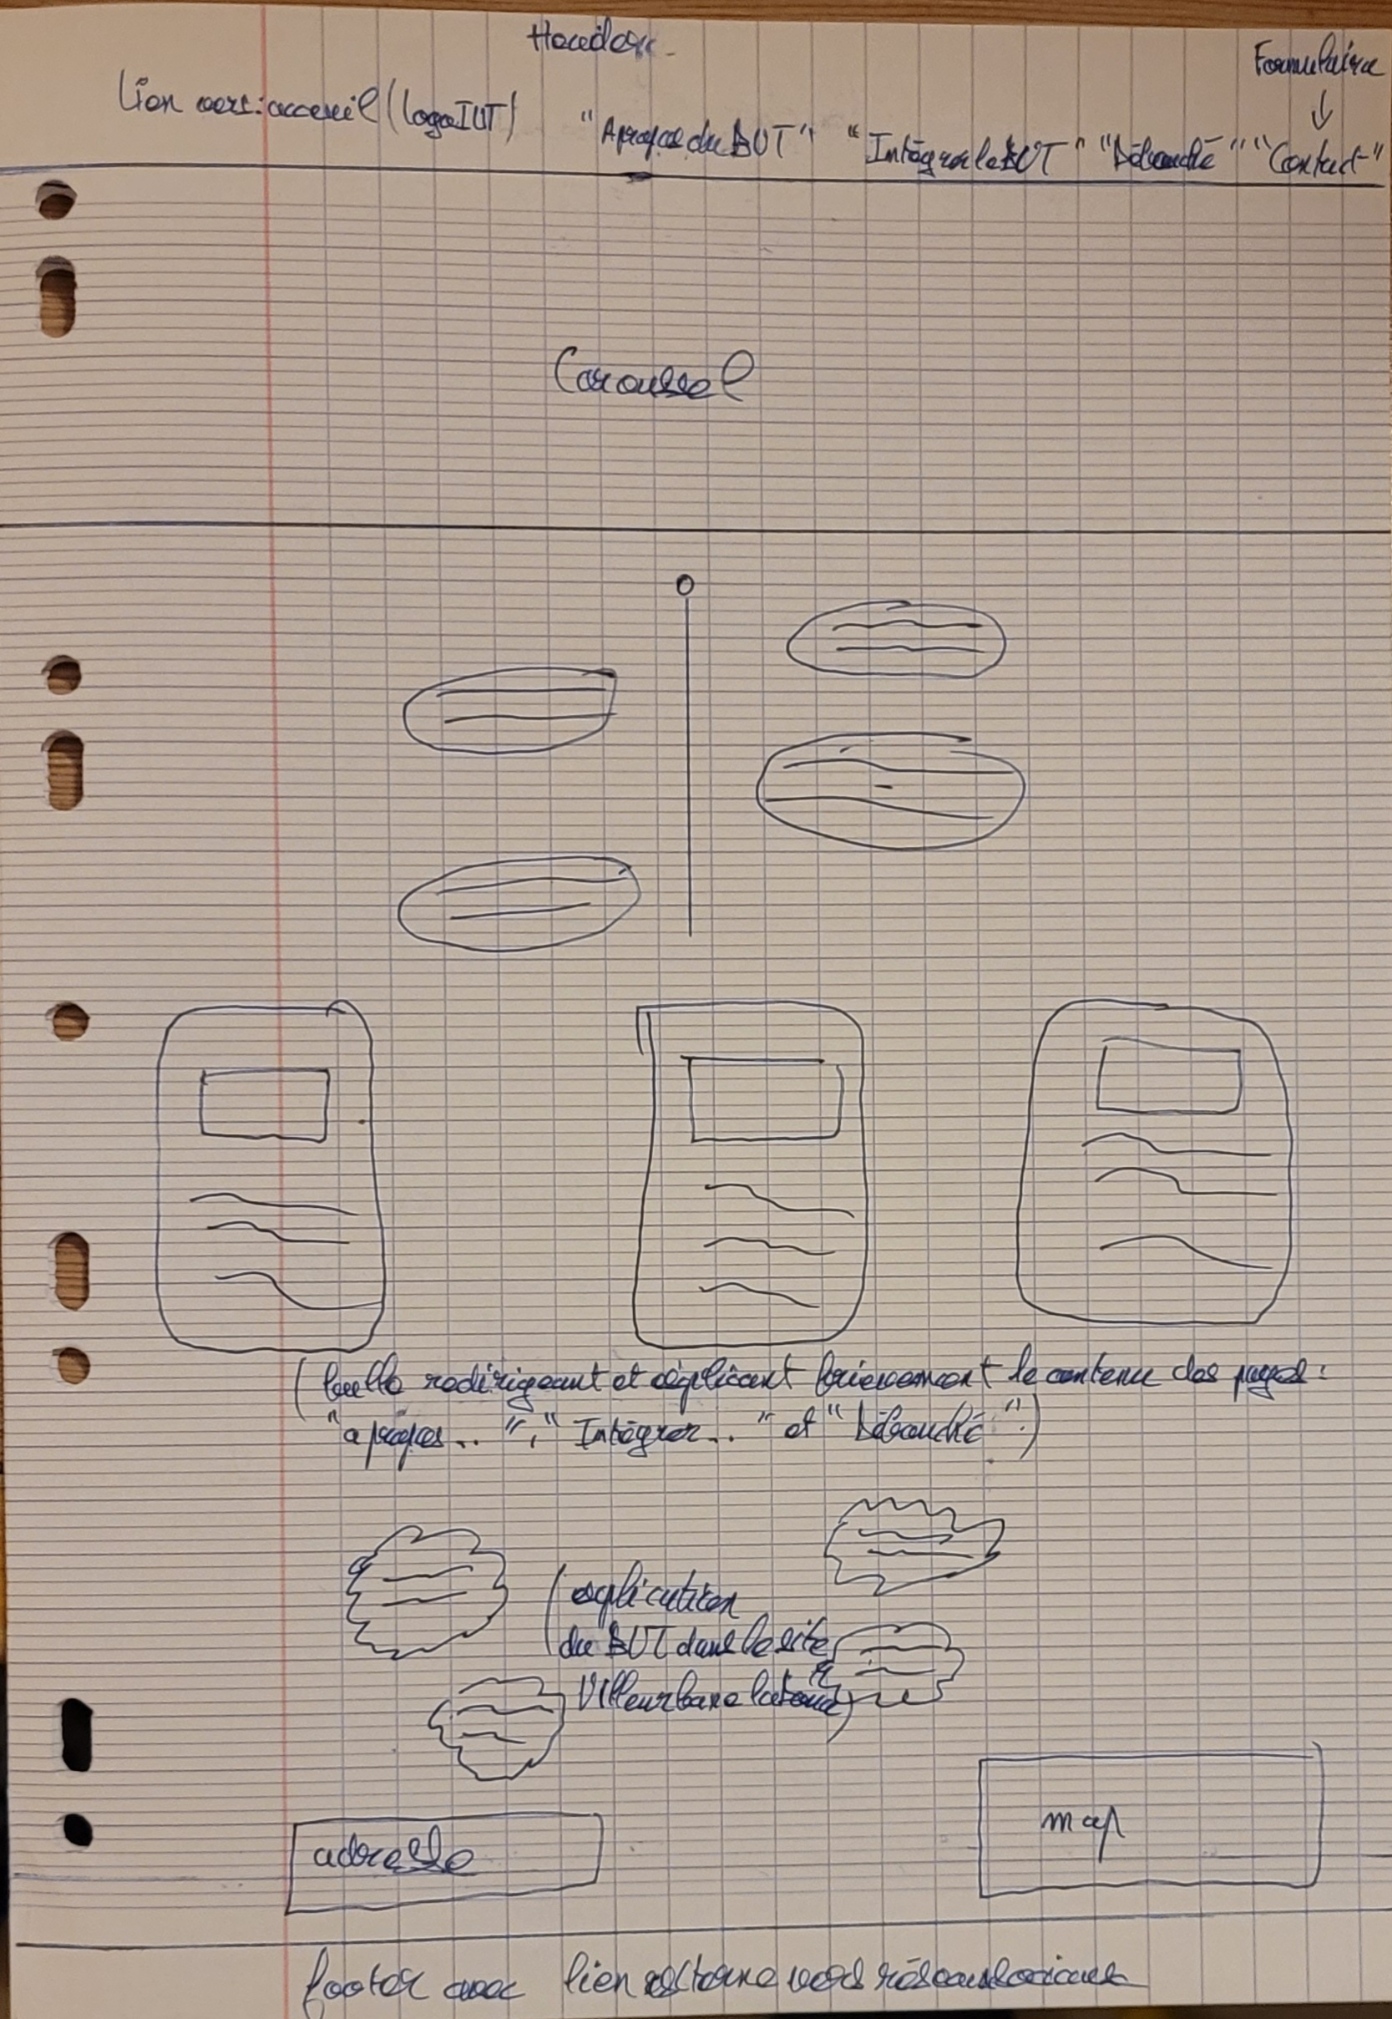 Header
Formulaire
↓
Lien vers: acceuil (logo IUT) "Apropos du BUT" "Intégrer le BUT" "Débouché" "Contact"
Caroussel
(bulle redirigeant et expliquant brièvement le contenu des pages:
"apropos.. ", "Intégrer.. " et "Débouché".)
(explication
du BUT dans le site
Villeurbane
adresse
map
footer avec lien externe vers réseaux sociaux